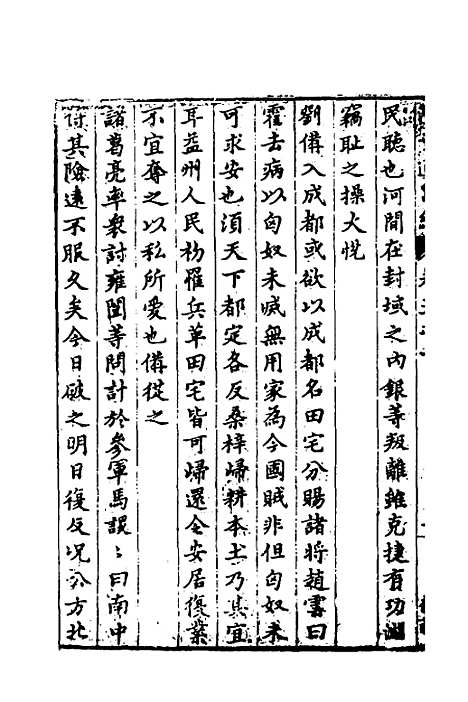 民聽也河間在封域之內銀等叛離雖克捷有功淵
竊耻之操大悅
劉備入成都或欲以成都名田宅分賜諸將趙雲曰
霍去病以匈奴未滅無用家為今國賊非但匈奴未
可求安也須天下都定各反桑梓歸耕本土乃其宜
耳益州人民初罹兵革田宅皆可歸還令安居復業
不宜奪之以私所愛也備從之
諸葛亮率衆討雍闓等問計於參軍馬謖〻曰南中
恃其險遠不服久矣今日破之明日復反况公方北